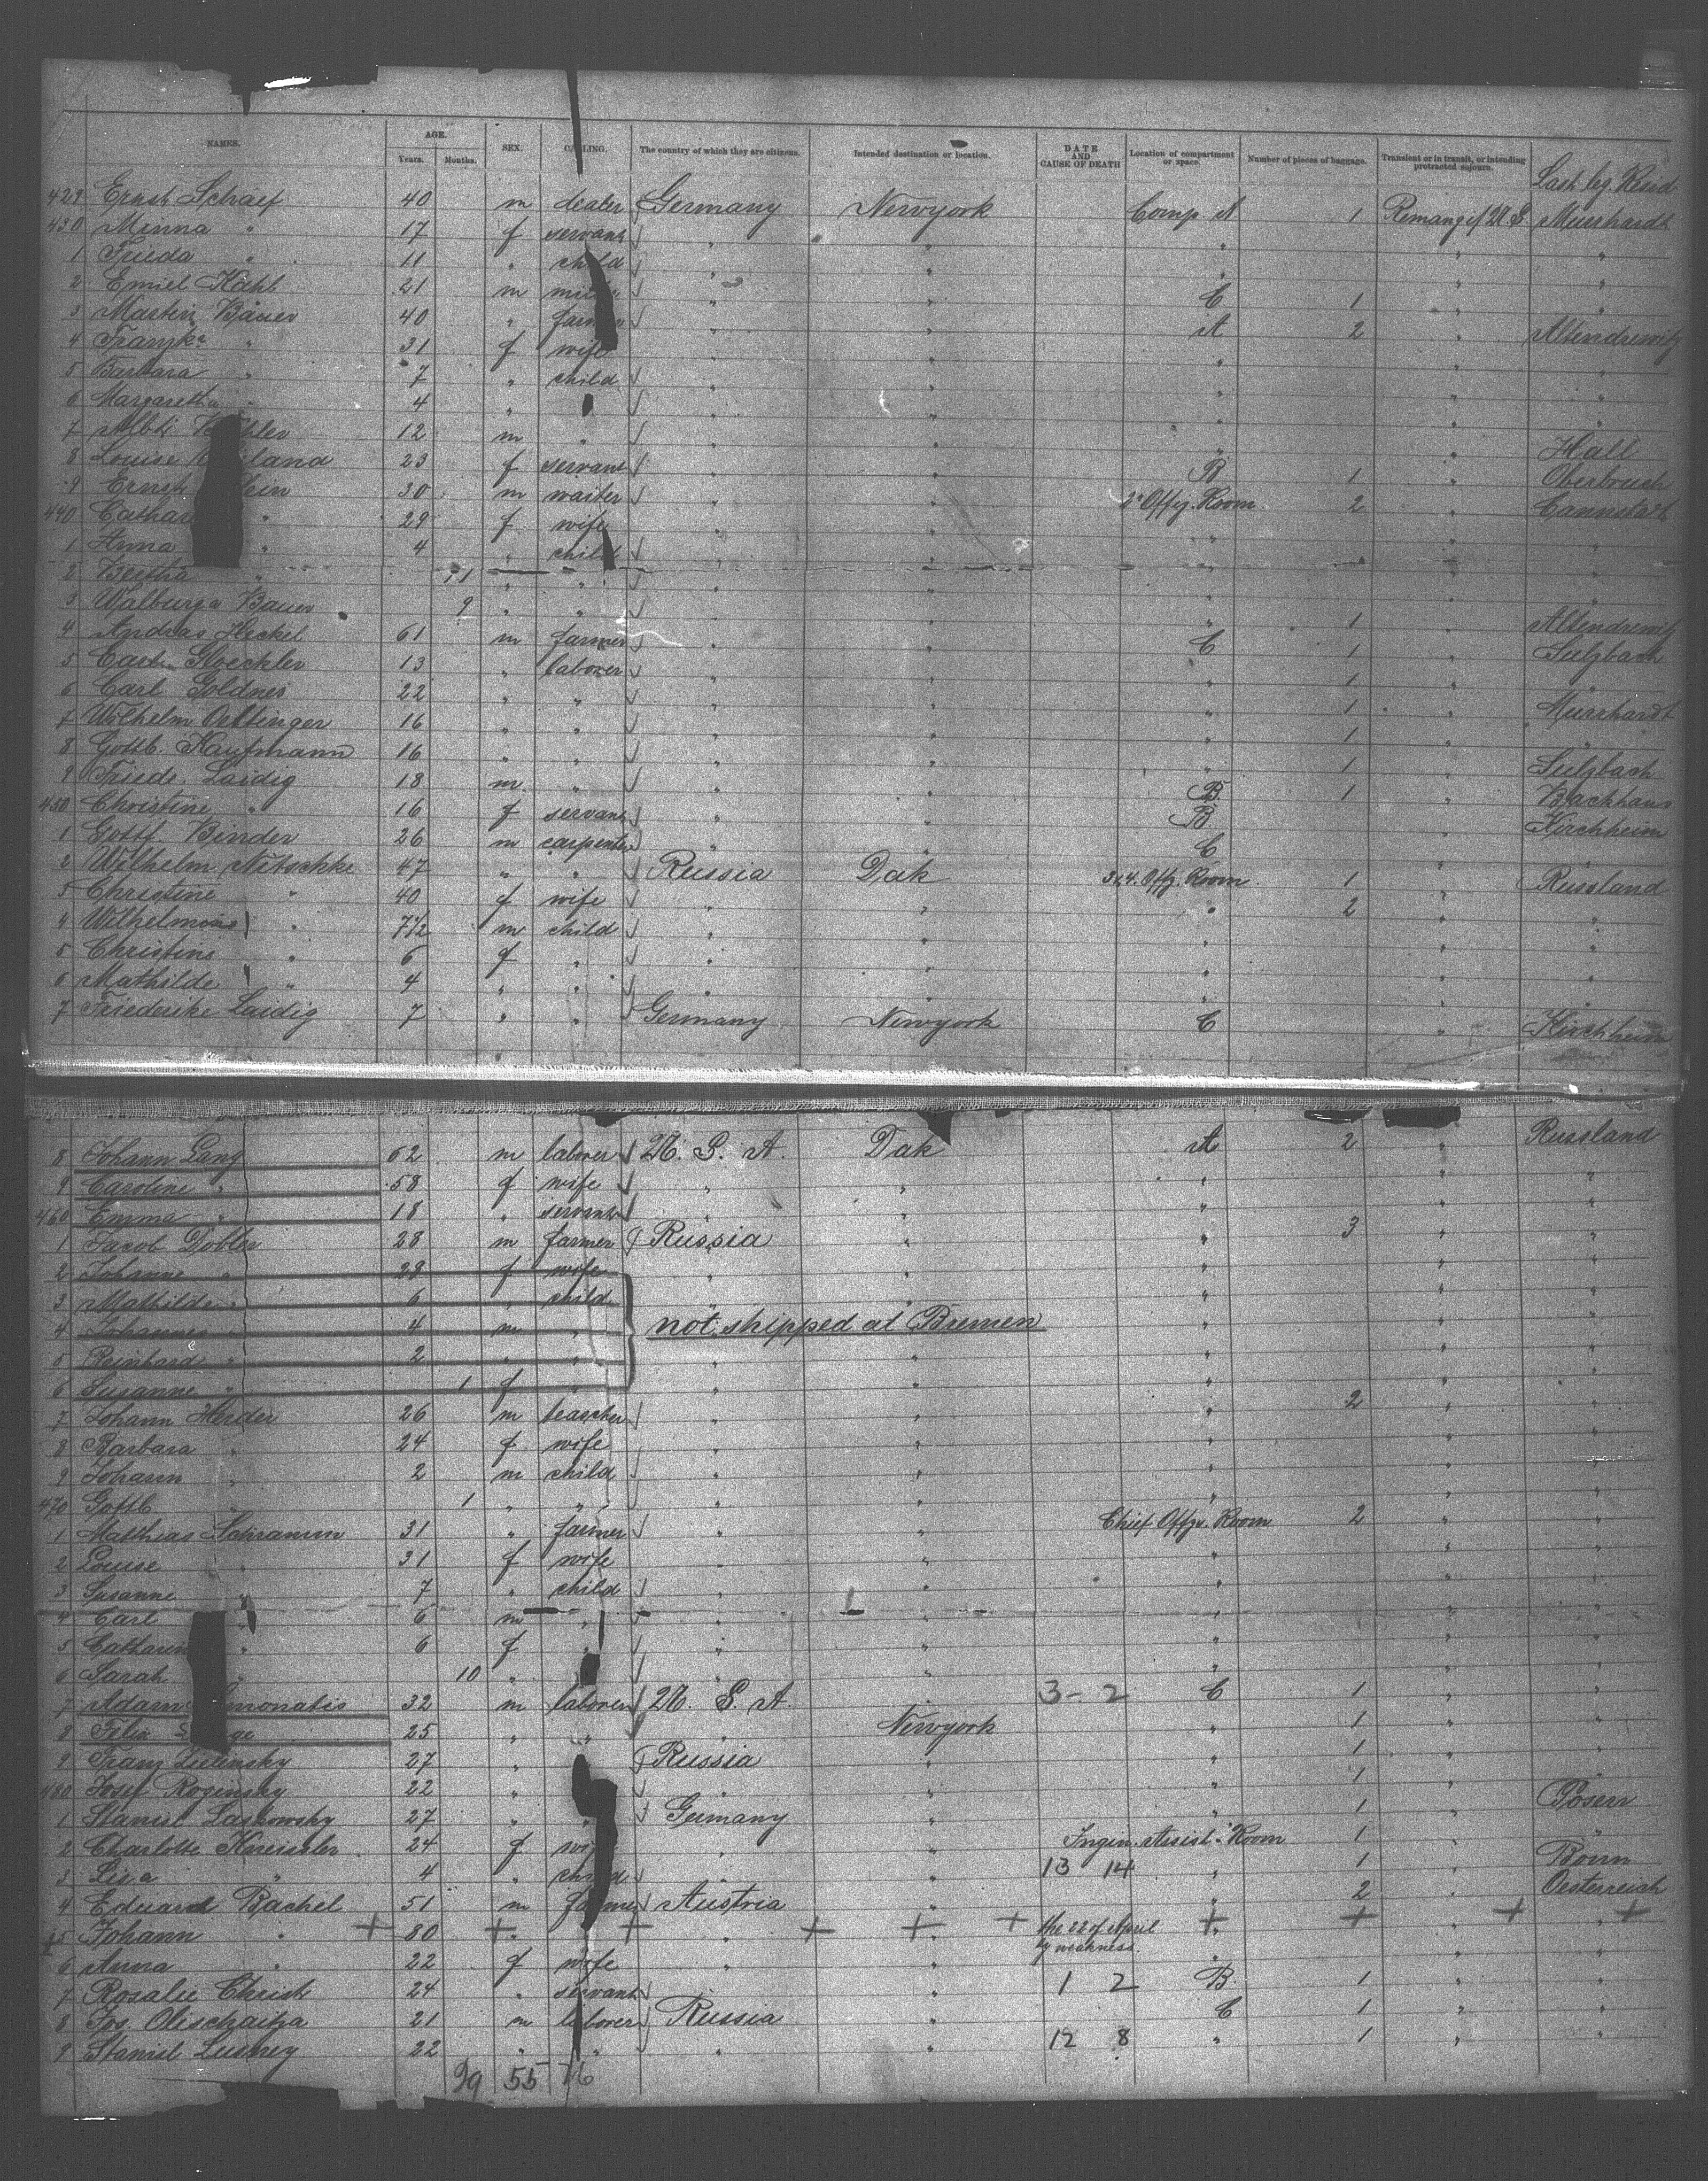 NAMES. AGE. Years. Months. SEX. CALLING. The country of which they are citizens. Intended destination or location. DATE AND CAUSE OF DEATH Location of compartment or space. Number of pieces of baggage. Transient or in transit, or intending protracted sojourn.
Last leg Resid
429 Ernst 40 m dealer Germany Newyork Comp. A 1 U S Murrhardt
430 Minna " 17 f servant " " " " "
1 Frieda " 11 " child " " " " "
2 Emiel 21 m " " C 1 " "
3 Martin Bauer 40 " farmer " " A 2 " Altendrewitz
4 " 31 f wife " " " " "
5 Barbara " 7 " child " " " " "
6 Margaretha " 4 " " " " " " "
7 12 m " " " " " Hall
8 Louise 23 f servant " " B 1 " Oberbruch
9 Ernst 30 m waiter " " 2d Offz. Room 2 " Cannstatt
440 " 29 f wife " " " " " "
1 Anna " 4 " child " " " " "
2 Bertha " 11 " " " " " " "
3 Walburga Bauer 9 " " " " " 1 " Altendrewitz
4 Andreas Heckel 61 m farmer " " C 1 " Sulzbach
5 Carl Gloeckler 13 " laborer " " " 1 "
6 Carl Goldner 22 " " " " " 1 " Murrhardt
7 Wilhelm Oettinger 16 " " " " " 1 " "
8 Gottb. Kaufmann 16 " " " " " 1 " Sulzbach
9 Friedr. Laidig 18 m " " " B 1 " Backhaus
450 Christine " 16 f servant " " B " Kirchheim
1 Gottf. Binder 26 m carpenter " " C "
2 Wilhelm Nitschke 47 " " Russia Dak 3. 4. Offz. Room 1 " Russland
3 Christine " 40 f wife " " " 2 " "
4 " 7 1/2 m child " " " " "
5 Christine " 6 f " " " " " "
6 Mathilde " 4 " " " " " " "
7 Friederike Laidig 7 " " Germany Newyork C " Kirchheim
8 Johann Lang 62 m laborer U. S. A. Dak A 2 " Russland
9 Caroline " 58 f wife " " " " "
460 Emma " 18 " servant " " " " "
1 Jacob Dobler 28 m farmer Russia " " 3 " "
2 Johanne " 28 f wife " " " " "
3 Mathilde " 6 " child " " " " "
4 Johannes " 4 m " not shipped at Bremen " " "
5 Reinhard " 2 " " " " " " "
6 Susanne " 1 f " " " " " "
7 Johann Herder 26 m teascher " " " 2 " "
8 Barbara " 24 f wife " " " " "
9 Johann " 2 m child " " " " "
470 Gottlb " 1 " " " " " " "
1 Matthias Schramm 31 " farmer " " Chief Offz. Room 2 " "
2 Louise " 31 f wife " " " " "
3 Susanne " 7 " child " " " " "
4 Carl " 6 m " " " " " "
5 Catharin " 6 f " " " " " "
6 Sarah " 10 " " " " " " "
7 Adam 32 m laborer U. S. A. " 3 - 2 C 1 " "
8 Felix 25 " " " Newyork " 1 " "
9 Franz Zielinsky 27 " " Russia " " 1 " "
480 Josef Roginsky 22 " " " " " 1 " "
1 Stanisl Laskowsky 27 " " Germany " " 1 " Posen
2 Charlotte 24 f wife " " Ingin. Assist. Room 1 " "
3 " 4 " child " " 13 14 " 1 " Bonn
4 Eduard Rachel 51 m farmer Austria " " 2 " Oesterreich
5 Johann " + 80 + " + " + + " + the 22 of April by weakness + " + " + " +
6 Anna " 22 f wife " " " " "
7 Rosalie Christ 24 " servant " " 1 2 B 1 " "
8 Jos. Olischaitza 21 m laborer Russia " C 1 " "
9 Stanisl 22 " " " " 12 8 " 1 " "
99 55 76